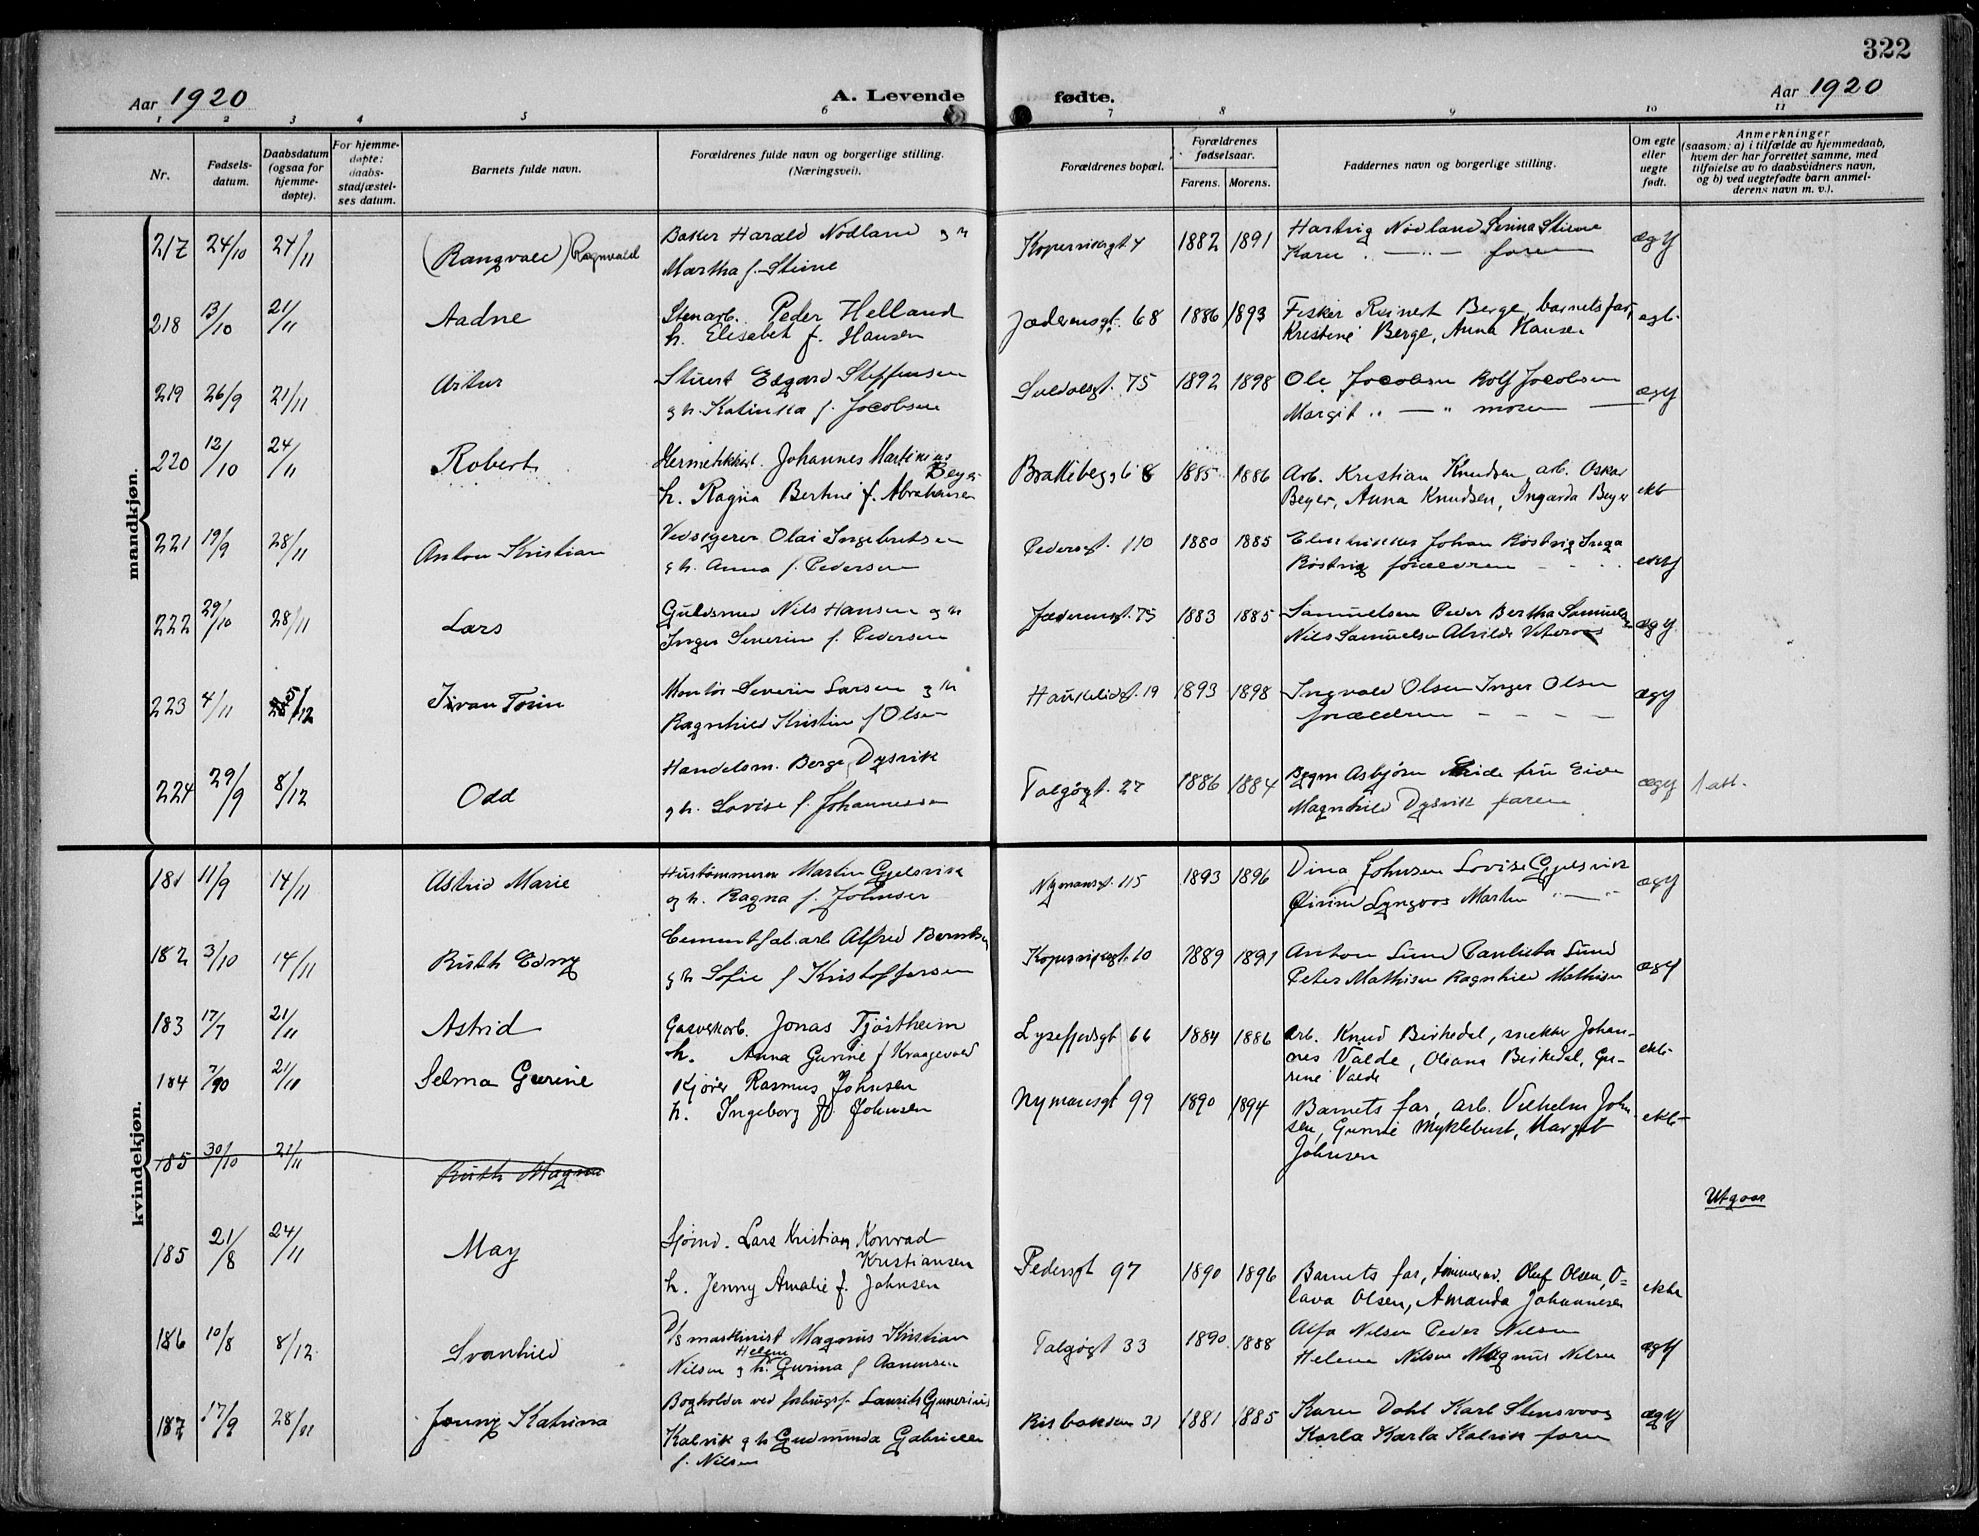 322
Aar 1920
A. Levende fødte.
Aar 1920
1 2 3 4 5 6 7 8 9 10 11
Nr.
Fødselsdatum.
Daabsdatum (ogsaa for hjemmedøpte).
For hjemmedøpte: daabsstadfæstelses datum.
Barnets fulde navn.
Forældrenes fulde navn og borgerlige stilling. (Næringsvei).
Forældrenes bopæl.
Forældrenes fødselsaar.
Farens. Morens.
Faddernes navn og borgerlige stilling.
Om egte eller uegte født.
Anmerkninger (saasom: a) i tilfælde av hjemmedaab, hvem der har forrettet samme, med tilføielse av to daabsvidners navn, og b) ved uegtefødte barn anmelderens navn m. v.).
mandkjøn.
217 24/10 24/11 (Rangvald) Ragnvald Baker Harald Nodland og h Kopervikgt 4 1882 1891 Hartvig Nodland Stiene ægt
Martha f. Stiene Karen " — " — faren
218 13/10 21/11 Aadne Stenarb. Peder Helland Jæderensgt. 68 1886 1893 Fisker Reinert Berge, barnets far, egt.
h. Elisabet f. Hansen Kristine Berge, Anna Hansen
219 26/9 21/11 Artur Stuert Edgard Steffensen Svoldesgt. 75 1892 1898 Ole Jacobsen Rolf Jacobsen ægt
og h. Katinka f. Jacobsen Margit " — " moren
220 12/10 24/11 Robert Hermetikkarb. Johannes Martinius Beyer 1885 1886 Arb. Kristian Knudsen, arb. Oskar ekt
h. Ragna Bertine f. Abrahamsen Beyer, Anna Knudsen, Ingarda Beyer
221 19/9 28/11 Anton Kristian Olai Ingebretsen Pedersgt. 110 1880 1885 Johan Røstvig Inga
og h. Anna f. Pedersen Røstvig forældren
222 29/10 28/11 Lars Guldsmed Nils Hansen og h Jæderensgt. 75 1883 1885 Samuelsen Peder Bertha Samuels ægt
Inger Severin f. Pedersen Nils Samuelsen Alvilde
223 4/11 /12 Ivan Torin Montør Severin Larsen og h Haukelidgt. 19 1893 1898 Ingvald Olsen Inger Olsen ægt
Ragnhild Kristin f Olsen forældren
224 29/9 8/12 Odd Handelsm. Berge Dysvik Talgøgt. 27 1886 1884 Bygm Asbjørn Eide fru Eide ægt 1 att.
og h. Lovise f. Johannessen Magnhild Dysvik faren
kvindekjøn.
181 11/9 14/11 Astrid Marie Hustømmerm Martin Gjelsvik Nymansgt. 115 1893 1896 Dina Johnsen Lovise Gjelsvik ægt
og h. Ragna f. Johnsen Lyngaas Martin " — "
182 3/10 14/11 Ruth Edny Cementfab.arb Alfred Berntsen Kopervikgt. 10 1889 1891 Anton Lund Paulista Lund ægt
og h Sofie f Kristoffersen Peter Mathisen Ragnhild Mathisen
183 17/7 21/11 Astrid Gasverkarb. Jonas Tjøstheim Lysefjordsgt 66 1884 1886 Arb. Knud Birkedal, snekker Johan- ekte
h. Anna Gurine f Kraagevold nes Valde, Oleana Birkedal, Gu-
rine Valde
184 21/10 Selma Gurine Kjører Rasmus Johnsen Nymansgt 99 1890 1894 Barnets far, arb. Vilhelm John- ekte
h. Ingeborg f Johnsen sen, Gurine Myklebust, Margit
Johnsen
185 30/10 21/11 Ruth Magna
Utgaar
185 21/8 24/11 May Sjømd. Lars Kristian Konrad Kristiansen Pedersgt 97 1890 1896 Barnets far, tømmermd. Oluf Olsen, O- ekte
h. Jenny Amalie f. Johnsen lava Olsen, Amanda Johannesen
186 10/8 8/12 Svanhild D/s maskinist Magnus Kristian Talgøgt 33 1890 1888 Alfa Nilsen Peder Nilsen ægt
Nilsen og h. Helene Gurina f Aanensen Helene Nilsen Magnus Nilsen
187 17/9 28/11 Jenny Katrina Bogholder ved forbrugsf. Laurits Gunerius Risbakken 31 1881 1885 Karen Dahl Karl Stensvoog ægt
Kalvik og h Gudmunda Gabrielle Karla Karla Kalvik faren
f. Nilsen